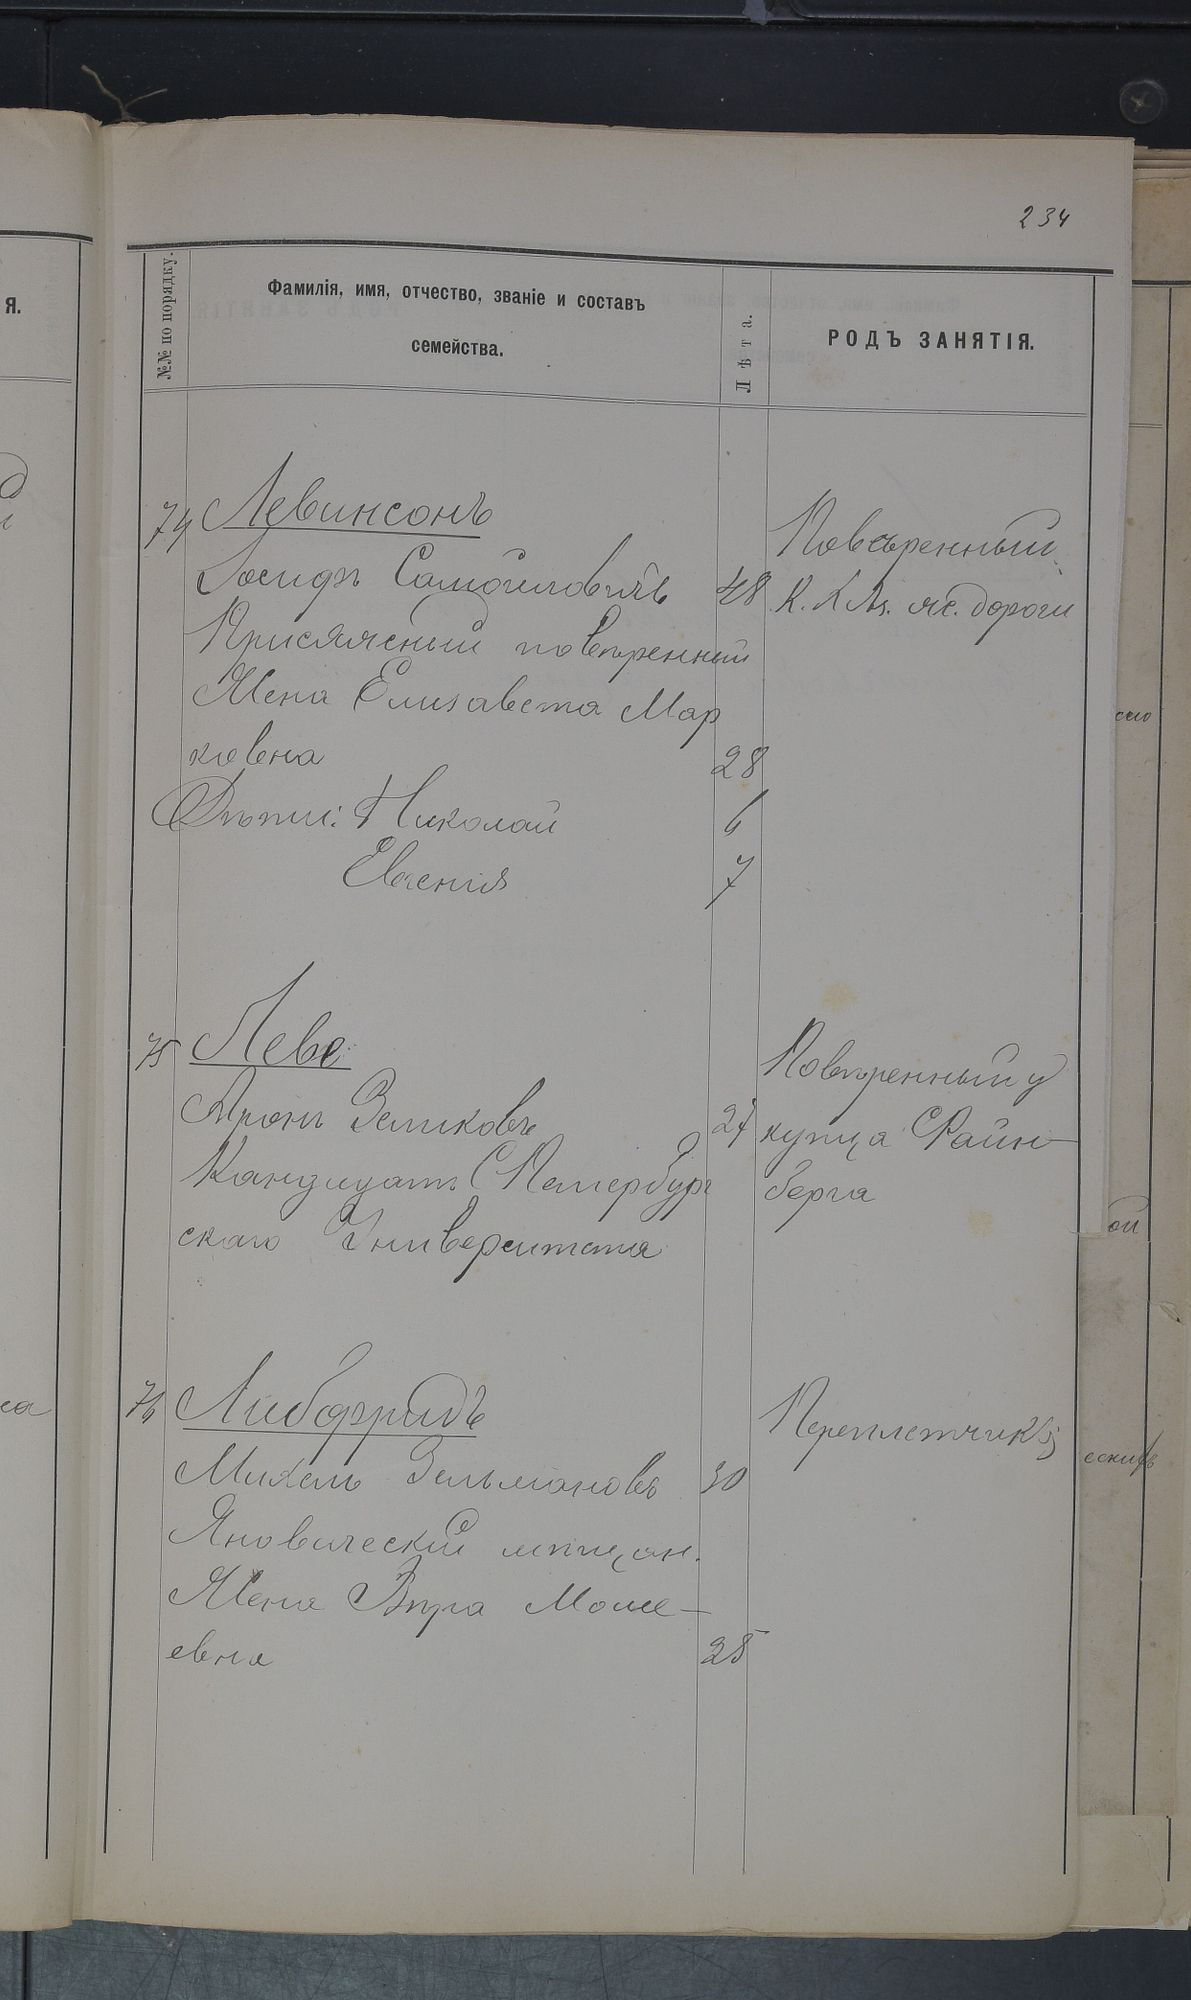 234
Я.
№№ по порядку.
Фамилія, имя, отчество, званіе и составъ
семейства.
Лѣта.
РОДЪ ЗАНЯТІЯ.
74 Левинсонъ
Повѣренный
Іосифъ Самойловичъ 48 К. К. Аз. жс. дороги
Присяжный повѣренный
Жена Елизавета Мар
ковна 28
Дѣти: Николай 6
Евгенія 7
75 Леве
Повѣренный у
Аронъ Зеликовъ 27 купца Файн-
Кандидатъ СПетербург берга
скаго Университета
76 Либфридъ
Переплетчикъ
Михель Зельмановъ 30
Яновическій мѣщан.
Жена Вѣра Моше-
евна 25